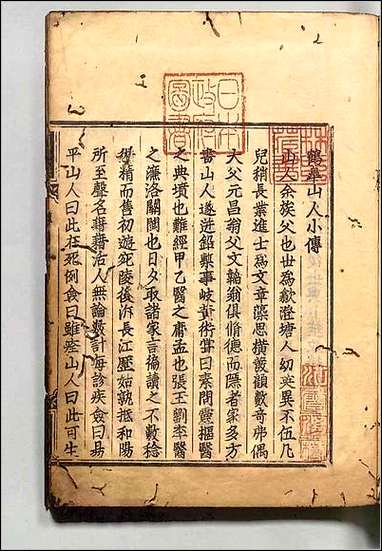 鶴皐山人小傳
山人余族父也世為歙澄塘人幼英異不伍凡
兒稍長業進士為文章藻思橫襲顧數奇弗偶
大父元昌翁父文韜翁俱脩德而隱者家多方
書山人遂逃鉛槧事岐黃術嘗曰素問靈樞醫
之典墳也難經甲乙醫之庸孟也張王劉李醫
之濂洛關閩也日夕取諸家言徧讀之不數稔
術精而售初遊宛陵後泝長江歷姑孰抵和陽
所至聲名籍籍活人無論數計每診疾僉曰易
平山人曰此在死例僉曰難痊山人曰此可生
日本
政府
圖書
江雲渭樹